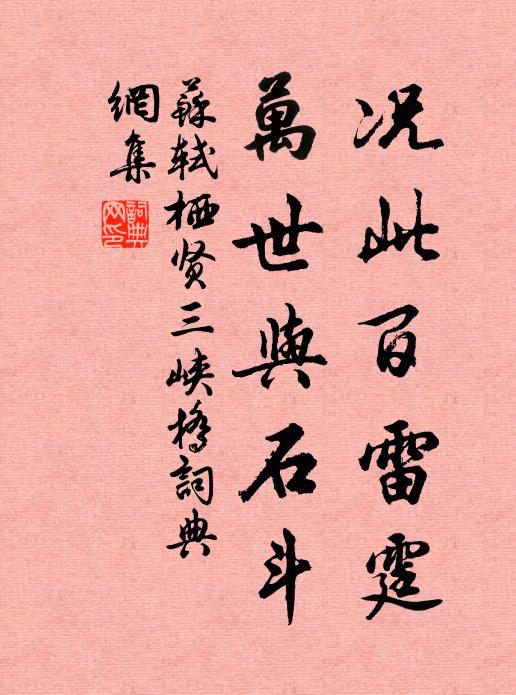 况此百雷霆
萬世與石斗
蘇軾栖贤三峽橋詞典
網集
詞典
网印